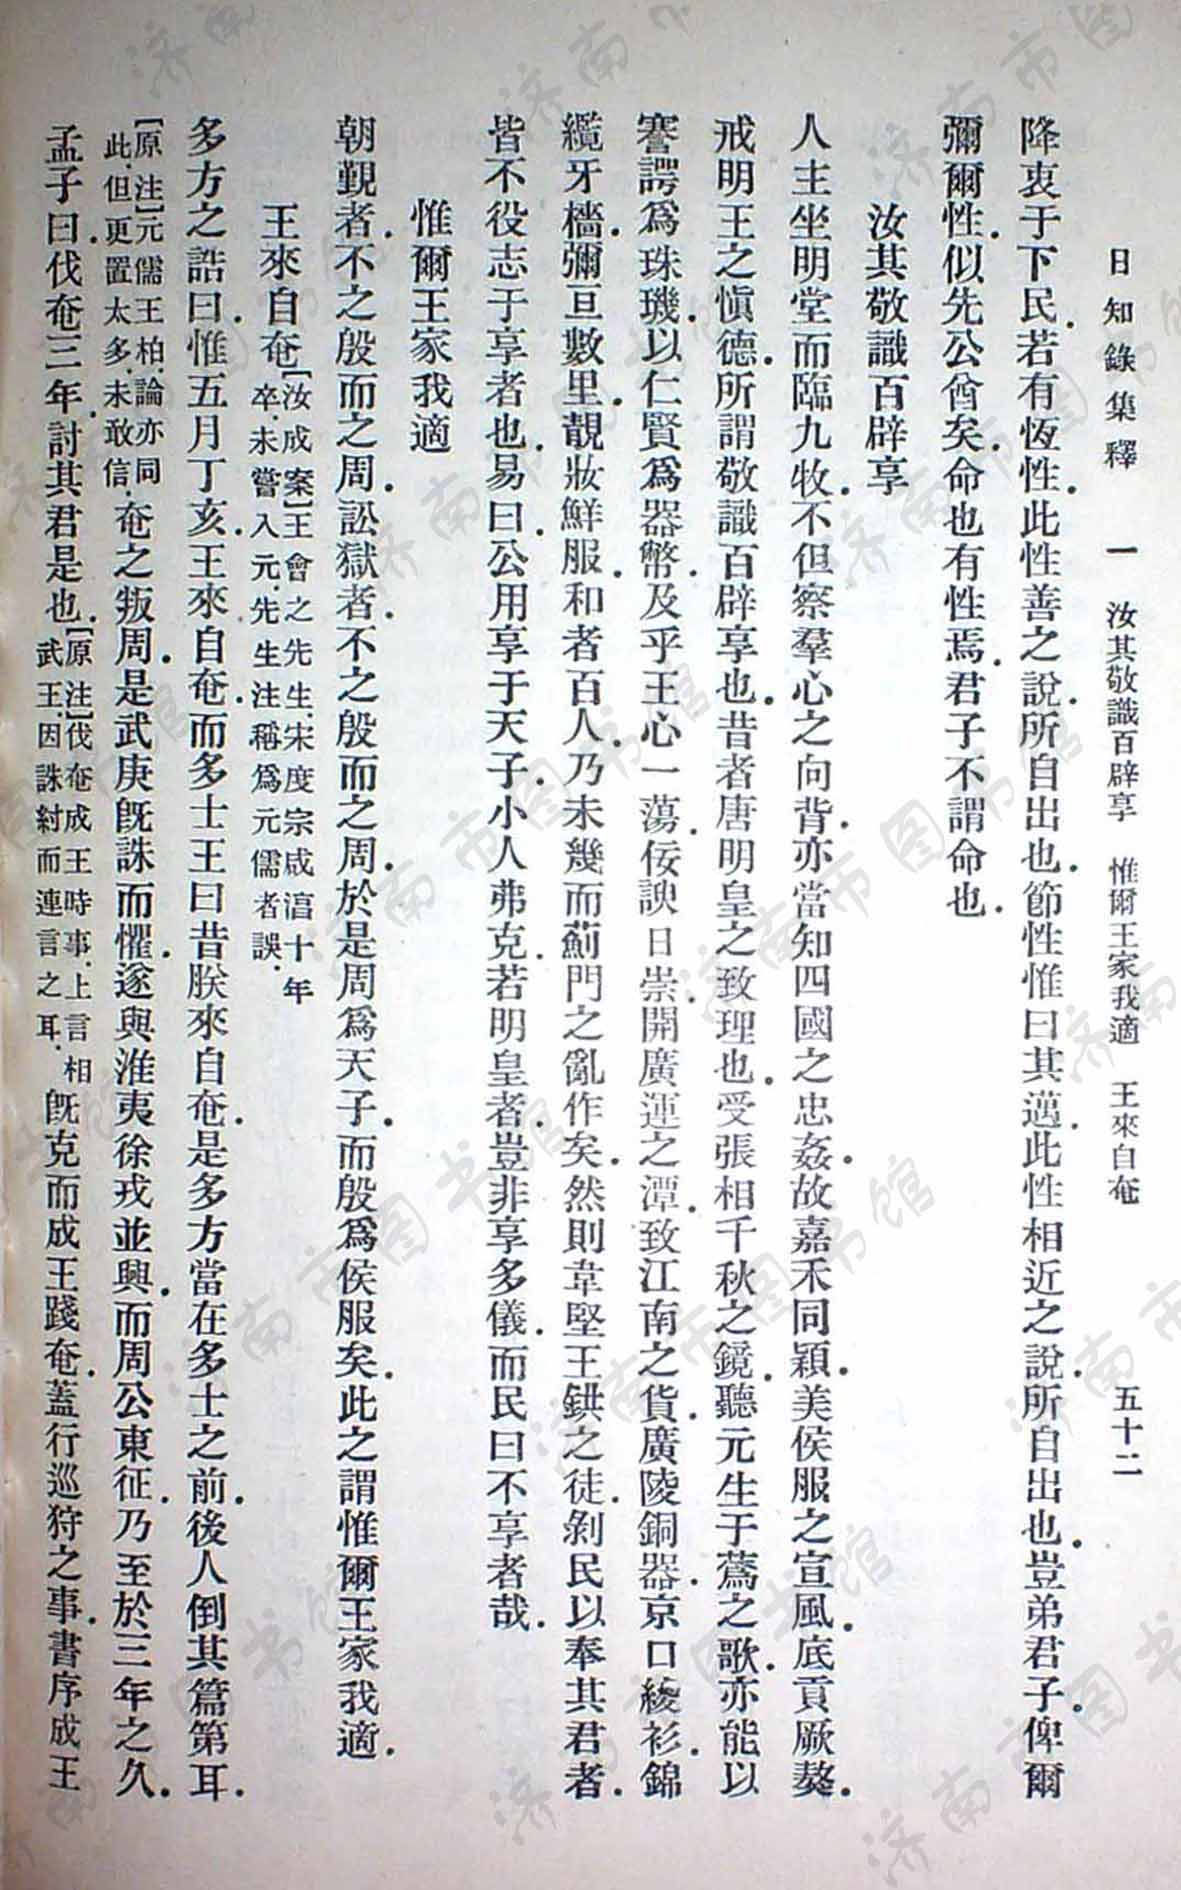 日知錄集釋　一　汝其敬識百辟享　惟爾王家我適　王來自奄　五十二
降衷于下民．若有恆性．此性善之說．所自出也．節性惟日其邁．此性相近之說．所自出也．豈弟君子．俾爾
彌爾性．似先公酋矣．命也有性焉．君子不謂命也．
汝其敬識百辟享
人主坐明堂而臨九牧．不但察羣心之向背．亦當知四國之忠姦．故嘉禾同穎．美侯服之宣風．底貢厥獒．
戒明王之愼德．所謂敬識百辟享也．昔者唐明皇之致理也．受張相千秋之鏡．聽元生于蔿之歌．亦能以
謇諤爲珠璣．以仁賢爲器幣．及乎王心一蕩．佞諛日崇．開廣運之潭．致江南之貨．廣陵銅器．京口綾衫．錦
纜牙檣．彌亘數里．靚妝鮮服．和者百人．乃未幾而薊門之亂作矣．然則韋堅王鉷之徒．剝民以奉其君者．
皆不役志于享者也．易曰．公用享于天子．小人弗克．若明皇者．豈非享多儀．而民曰不享者哉．
惟爾王家我適
朝覲者．不之殷而之周．訟獄者．不之殷而之周．於是周爲天子．而殷爲侯服矣．此之謂惟爾王家我適．
王來自奄[汝成案]王會之先生．宋度宗咸淳十年
卒．未嘗入元．先生注稱爲元儒者誤．
多方之誥曰．惟五月丁亥．王來自奄．而多士王曰昔朕來自奄．是多方當在多士之前．後人倒其篇第耳．
[原注]元儒王柏．論亦同
此．但更置太多．未敢信．奄之叛周．是武庚旣誅而懼．遂與淮夷徐戎並興．而周公東征．乃至於三年之久．
孟子曰．伐奄三年．討其君是也．[原注]伐奄成王時事．上言相
武王．因誅紂而連言之耳．旣克而成王踐奄．蓋行巡狩之事．書序成王